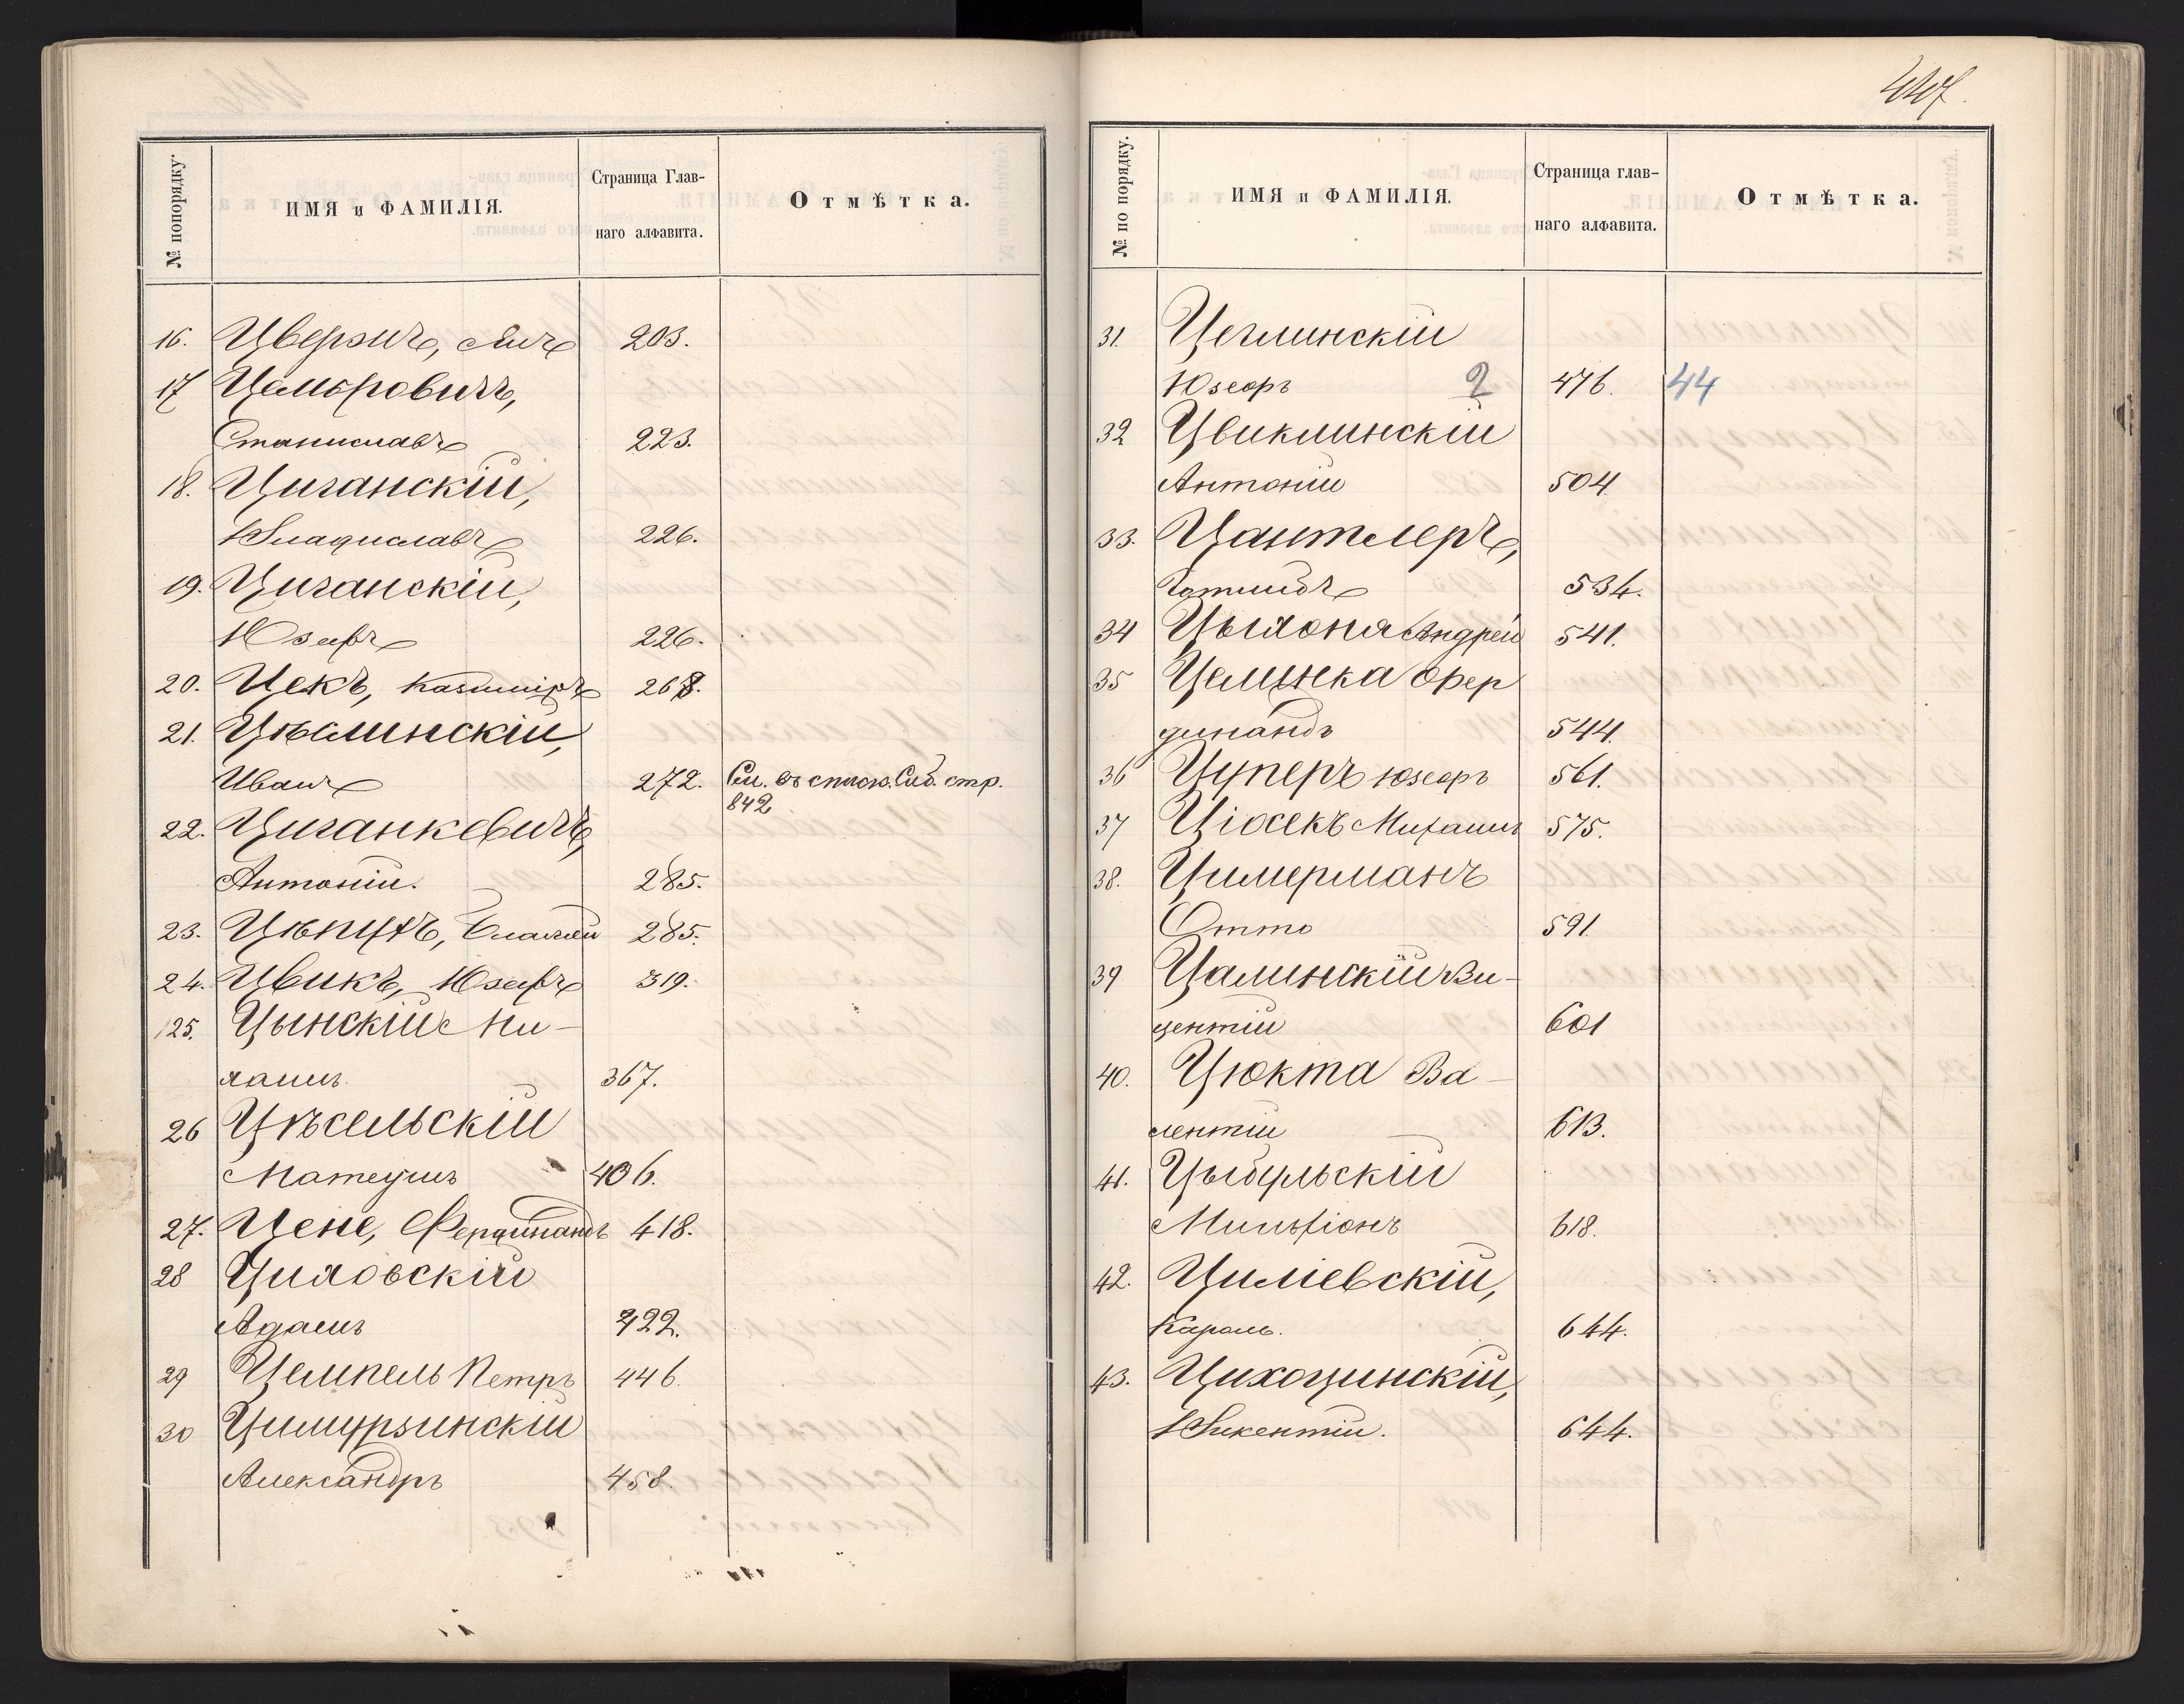 № попорядку.
ИМЯ и ФАМИЛІЯ.
Страница Глав-
наго алфавита.
Отмѣтка.
16. Цверзичъ, 203.
17 Цемеровичъ,
Станиславъ 223.
18. Циганскій,
Владиславъ 226.
19. Циганскій,
Юзефъ 226.
20. Цекъ, Казимиръ 268.
21. Цѣслинскій,
Иванъ 272. См. въ списк. Сиб. стр.
842
22. Циганкевичъ,
Антоній. 285.
23. Цѣпухъ, Блажей 285.
24. Цвикъ, Юзефъ 319.
25. Цынскій Ми-
хаилъ 367.
26 Цѣсельскій
Матеушъ 406.
27. Цене, Фердинандъ 418.
28 Циховскій
Адамъ 422.
29 Цемпель Петръ 446.
30 Цимурзинскій
Александръ 458.
447.
№ по порядку.
ИМЯ и ФАМИЛІЯ.
Страница глав-
наго алфавита.
Отмѣтка.
31. Цеглинскій
Юзефъ 2 476. 44
32 Цвиклинскій
Антоній 504.
33. Цантлеръ,
Готлибъ 534.
34 Цыхоня Андрей 541.
35 Целинка Фер
динандъ 544.
36 Цуперъ Юзефъ 561.
37 Ціосекъ Михаилъ 575.
38. Цимерманъ
Отто 591.
39 Цалинскій Ви-
центій 601
40. Цюкта Ва-
лентій 613.
41. Цыбульскій
618.
42. Циліевскій,
Кароль. 644.
43. Цихоцинскій,
Викентій. 644.